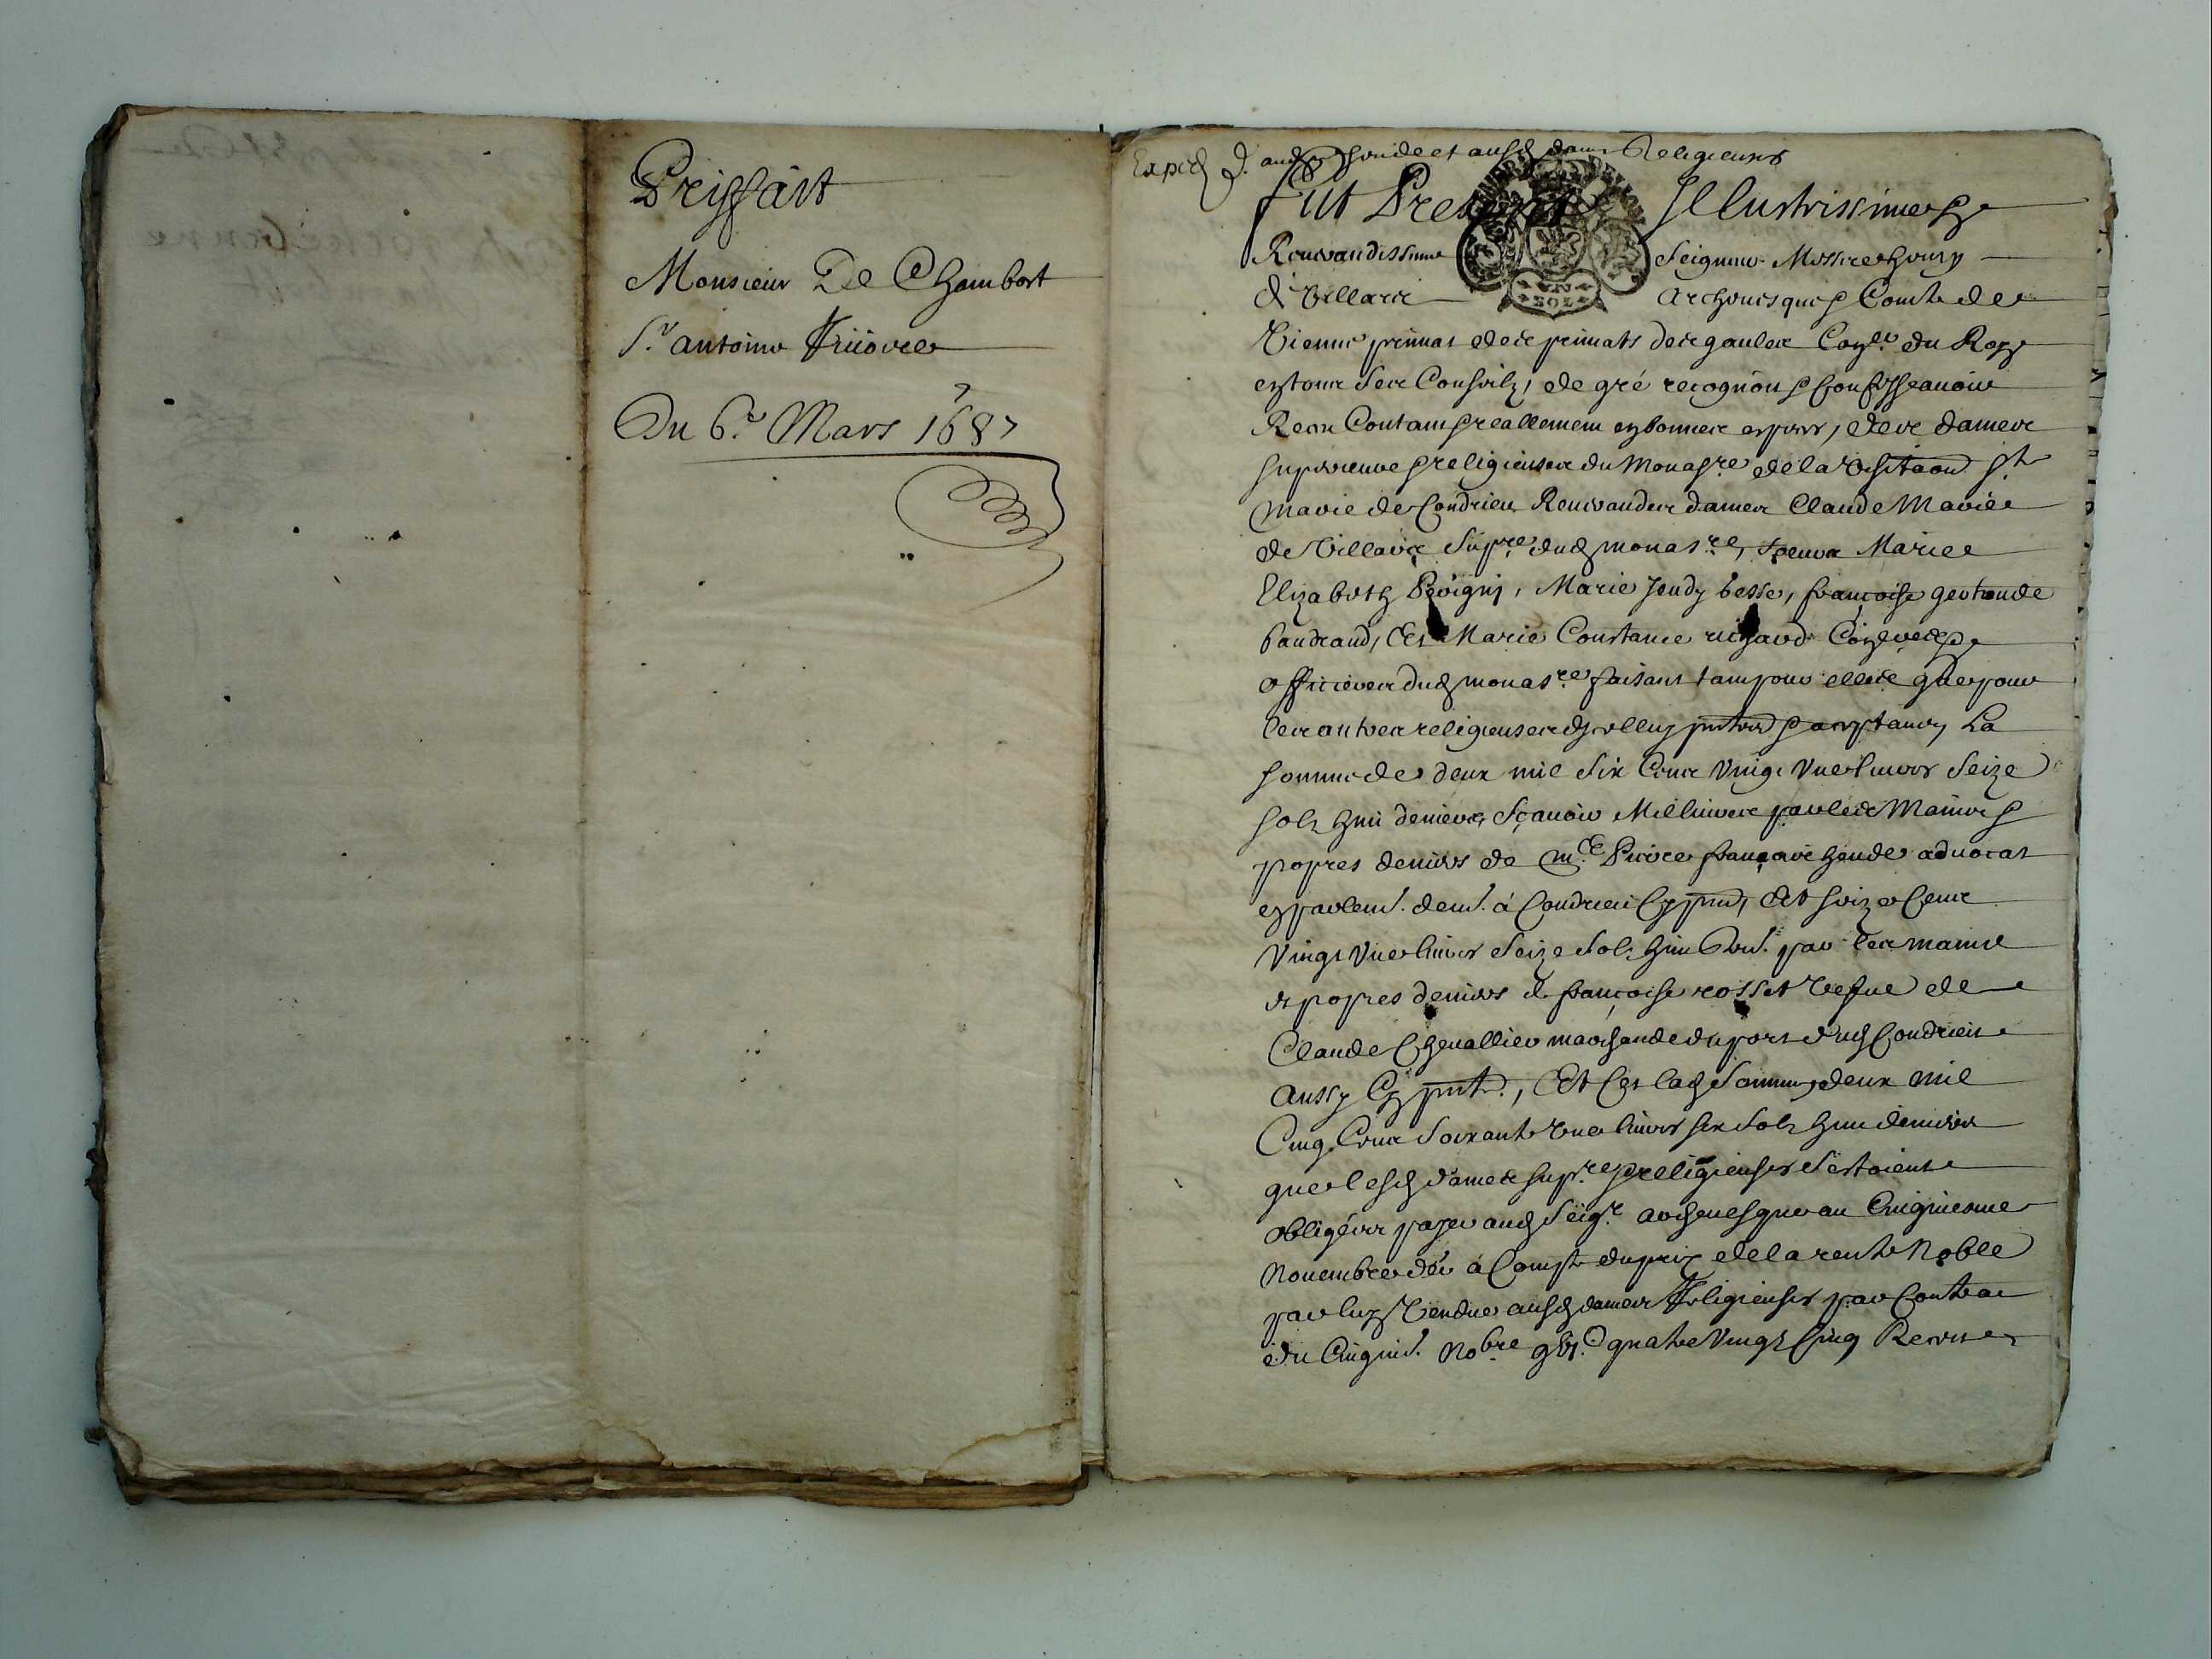 Prixfait
Monsieur De Chambort
Sr. antoine
Du 6e. Mars 1687
7
Exped. aud. hende et ausd. dames Religieuses
Fut Present Illustrissime &
Reuerandissime Seigneur Messire henry
de Villars Archeuesque & Comte de
Vienne primat des primats des gaules Conlr. du Roy
en tous ses Conseils, de gré recognoit & Confesse auoir
Receu Contant & reallement en bonnes especes, des dames
superieure & religieuses du Monastre. de la Visitaon. ste
marie de Condrieu Reuerandes dames Claude Marie
de Villars Supre. dud. monastre, soeurs Marie
Elizabeth, Marie Joudy besse, françoise gertrude
baudrand, Et Marie Constance richard Conseres &
officieres dud. monastre. faisant tant pour elles que pour
les autres religieuses dicelluy pntes & acceptantes, La
somme de deux mil six Cens vingt vne liures seize
sols huit deniers, Sçauoir Mil liures par les Mains &
propres deniers de me. Pierre françois hende aduocat
en parlemt. demt. à Condrieu Cy pnt, Et seize Cens
vingt vne liures seize sols huit den. par les mains
et propres deniers de françoise rosset Vefue de
Claude Cheuallier marchande du port dud. Condrieu
aussy Cy pnte., Et Cest lad. somme, deux mil
Cinq Cens soixante vne liures six sols huit deniers
que lesd. dames supre. & religieuses s'estoient
obligées payer aud. seigr. archeuesque au Cinquiesme
nouembre dernier à Compte du prix de la rente Noble
par luy Vendue ausd. dames Religieuses par Contrat
du Cinquie. nobre gbic quatre vingt Cinq Receu
UN
SOL